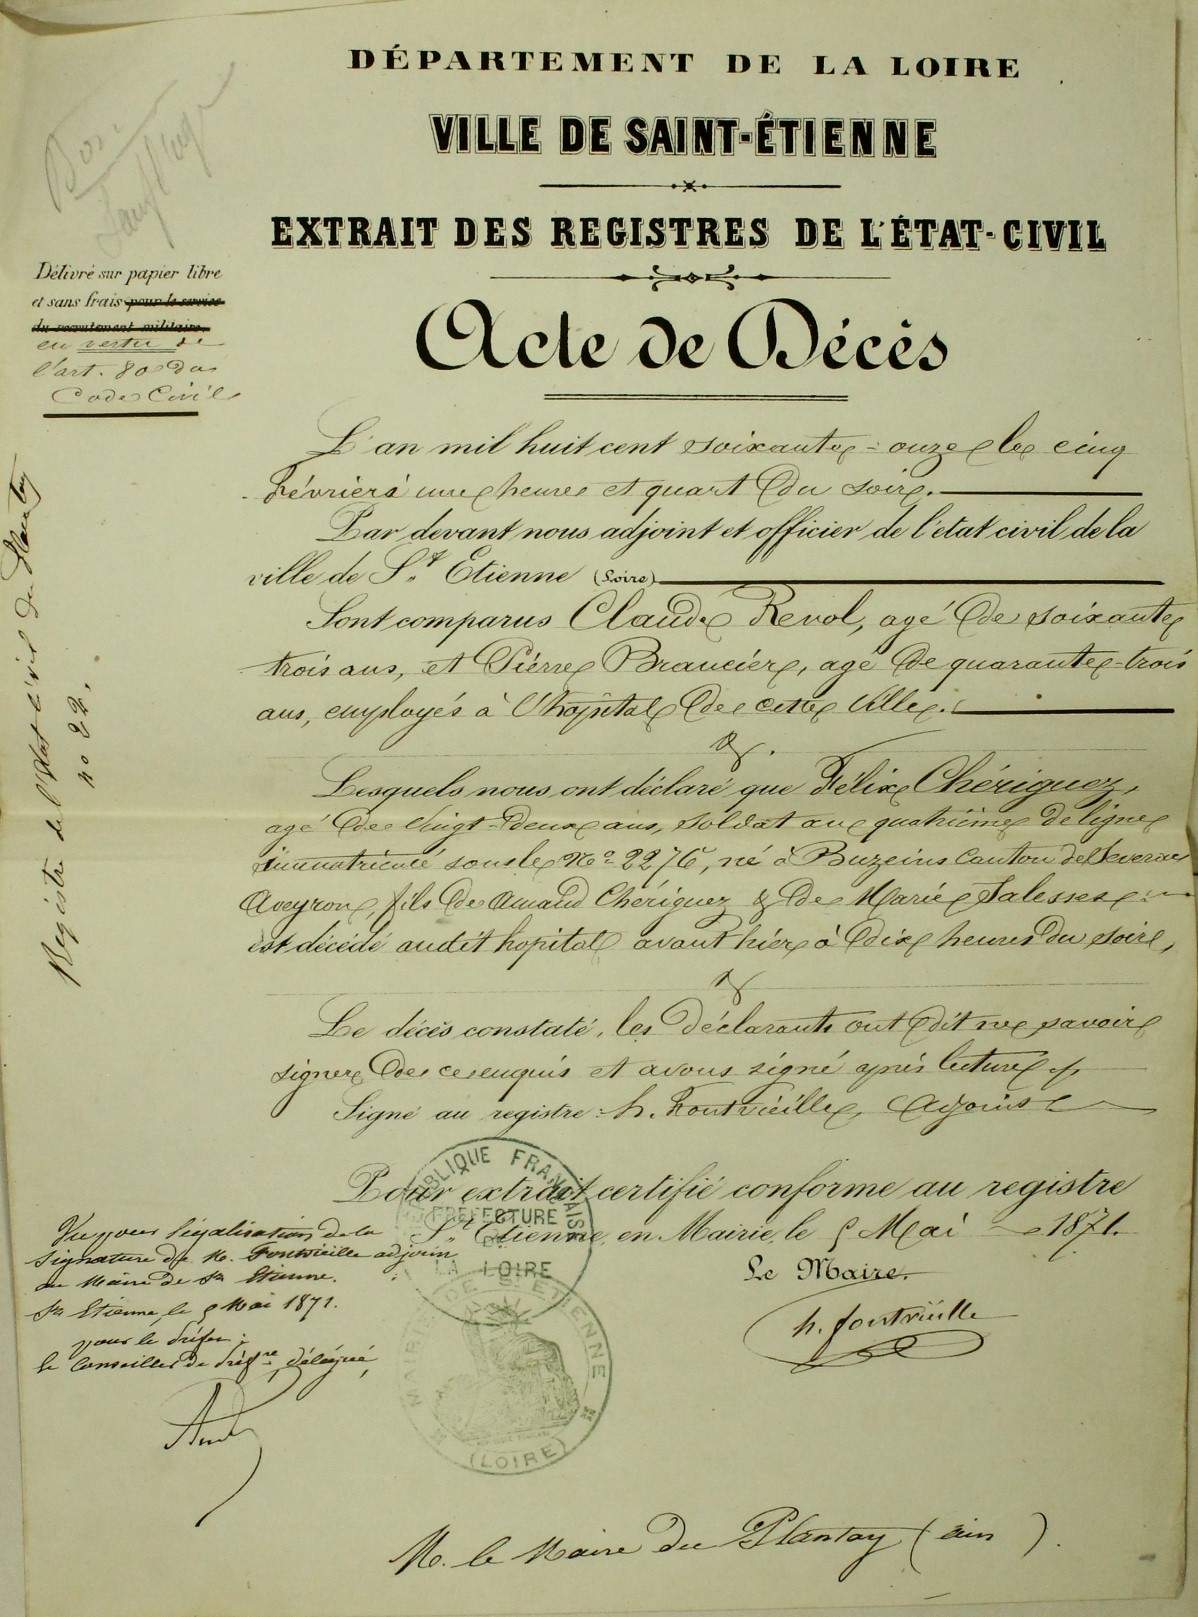 DÉPARTEMENT DE LA LOIRE
VILLE DE SAINT-ÉTIENNE
EXTRAIT DES REGISTRES DE L'ÉTAT-CIVIL
Délivré sur papier libre
et sans frais pour le service
du recrutement militaire.
en vertu de
l'art. 80 du
Code Civil
Acte de Décès
L'an mil huit cent soixante-onze le cinq
février à une heure et quart du soir.
Par devant nous adjoint et officier de l'état civil de la
ville de St Etienne (Loire)
Sont comparus Claude Revol, agé de soixante
trois ans, et Pierre Brancier, agé de quarante-trois
ans, employés à l'hôpital de cette ville.
Lesquels nous ont déclaré que Félix Chériguez,
agé de vingt-deux ans, soldat au quatrième de ligne
immatriculé sous le No 2276, né à Buzeins canton de Severac
Aveyron, fils de Amand Chériguez & de Marie Salesses
est décédé audit hopital avant hier à dix heures du soir,
Le décès constaté, les déclarants ont dit ne savoir
signer de ce enquis et avons signé après lecture
Signé au registre: h. Fontvieille, adjoint
Pour extrait certifié conforme au registre
St Etienne, en Mairie, le 5 Mai 1871.
Le Maire.
h. fontvieille
Registre de l'Etat Civil du Plantay
no 22.
Vu pour légalisation de la
signature de M. Fontvieille adjoint
au Maire de St Etienne.
St Etienne, le 5 Mai 1871.
pour le Préfet;
le Conseiller de Préfre, délégué,
RÉPUBLIQUE FRANÇAISE
PRÉFECTURE
DE
LA LOIRE
MAIRIE DE St ETIENNE
(LOIRE)
M. le Maire du Plantay (ain)